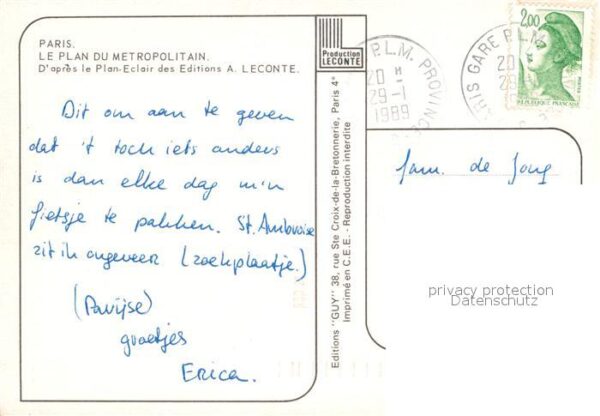 PARIS.
LE PLAN DU METROPOLITAIN.
D'après le Plan-Eclair des Editions A. LECONTE.
Dit om aan te geven
dat 't toch iets anders
is dan elke dag m'n
fietsje te pakken. St. Ambroise
zit ik ongeveer (zoekplaatje.)
(Parijse)
groetjes
Erica.
Production
LECONTE
Editions "GUY" 38, rue Ste Croix-de-la-Bretonnerie, Paris 4e
Imprimé en C.E.E. - Reproduction interdite
P.L.M. PROVINCE
20 H
29-1
1989
PARIS GARE P.L.M.
20
29
2,00
REPUBLIQUE FRANÇAISE
Fam. de Jong
privacy protection
Datenschutz